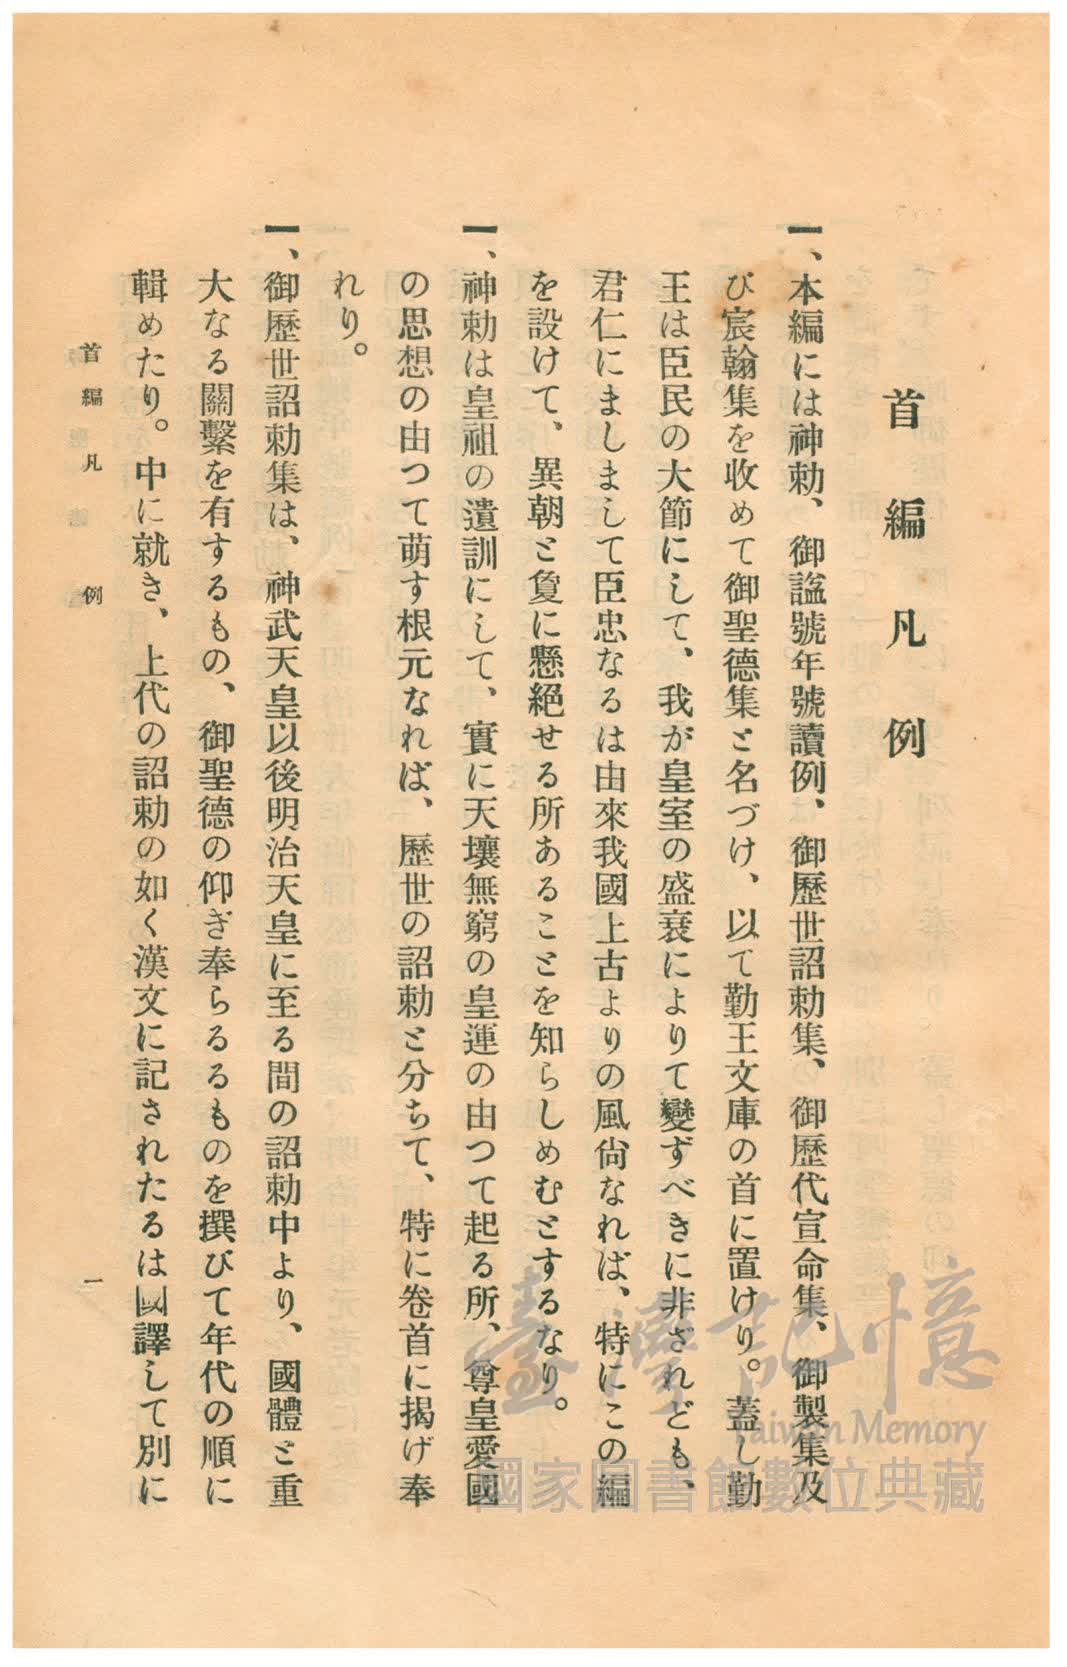 首編凡例
一、本編には神勅、御謚號年號讀例、御歷世詔勅集、御歷代宣命集、御製集及
び宸翰集を收めて御聖德集と名づけ、以て勤王文庫の首に置けり。蓋し勤
王は臣民の大節にして、我が皇室の盛衰によりて變ずべきに非ざれども、
君仁にましまして臣忠なるは由來我國上古よりの風尙なれば、特にこの編
を設けて、異朝と夐に懸絕せる所あることを知らしめむとするなり。
一、神勅は皇祖の遺訓にして、實に天壤無窮の皇運の由つて起る所、尊皇愛國
の思想の由つて萌す根元なれば、歷世の詔勅と分ちて、特に卷首に揭げ奉
れり。
一、御歷世詔勅集は、神武天皇以後明治天皇に至る間の詔勅中より、國體と重
大なる關繫を有するもの、御聖德の仰ぎ奉らるるものを撰びて年代の順に
輯めたり。中に就き、上代の詔勅の如く漢文に記されたるは國譯して別に
首編凡例
一
臺灣記憶
Taiwan Memory
國家圖書館數位典藏